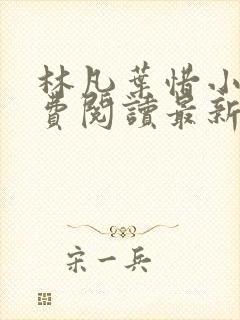 林凡葉惜小
費閱讀最新
宋一兵